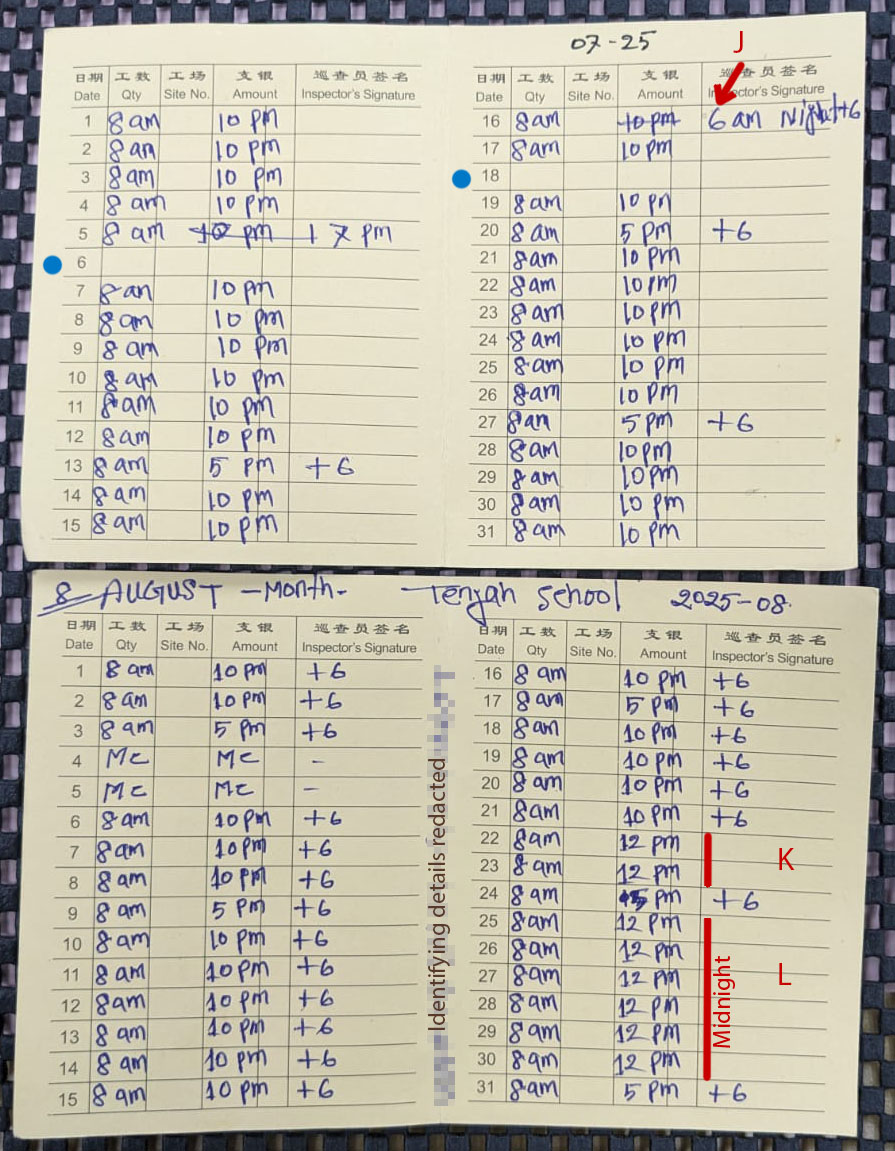 07-25
J
日期 工数 工场 支银 巡查员签名
Date Qty Site No. Amount Inspector's Signature
1 8 am 10 pm
2 8 am 10 pm
3 8 am 10 pm
4 8 am 10 pm
5 8 am 10 pm + 7 pm
6
7 8 am 10 pm
8 8 am 10 pm
9 8 am 10 pm
10 8 am 10 pm
11 8 am 10 pm
12 8 am 10 pm
13 8 am 5 pm +6
14 8 am 10 pm
15 8 am 10 pm
日期 工数 工场 支银 巡查员签名
Date Qty Site No. Amount Inspector's Signature
16 8 am 10 pm 6 am Night+6
17 8 am 10 pm
18
19 8 am 10 pm
20 8 am 5 pm +6
21 8 am 10 pm
22 8 am 10 pm
23 8 am 10 pm
24 8 am 10 pm
25 8 am 10 pm
26 8 am 10 pm
27 8 am 5 pm +6
28 8 am 10 pm
29 8 am 10 pm
30 8 am 10 pm
31 8 am 10 pm
8 AUGUST -Month- Tengah School 2025-08.
日期 工数 工场 支银 巡查员签名
Date Qty Site No. Amount Inspector's Signature
1 8 am 10 pm +6
2 8 am 10 pm +6
3 8 am 5 pm +6
4 Mc Mc -
5 Mc Mc -
6 8 am 10 pm +6
7 8 am 10 pm +6
8 8 am 10 pm +6
9 8 am 5 pm +6
10 8 am 10 pm +6
11 8 am 10 pm +6
12 8 am 10 pm +6
13 8 am 10 pm +6
14 8 am 10 pm +6
15 8 am 10 pm +6
Identifying details redacted
日期 工数 工场 支银 巡查员签名
Date Qty Site No. Amount Inspector's Signature
16 8 am 10 pm +6
17 8 am 5 pm +6
18 8 am 10 pm +6
19 8 am 10 pm +6
20 8 am 10 pm +6
21 8 am 10 pm +6
22 8 am 12 pm
23 8 am 12 pm
K
24 8 am 5 pm +6
25 8 am 12 pm
26 8 am 12 pm
27 8 am 12 pm
28 8 am 12 pm
29 8 am 12 pm
30 8 am 12 pm
Midnight
L
31 8 am 5 pm +6